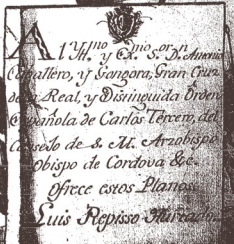 Al Yll.mo y Ex.mo S.or D.n Antonio
Cavallero, y Gongora, Gran Cruz
de la Real, y Distinguida Orden
Española de Carlos Tercero, del
Consejo de S. M. Arzobispo
Obispo de Cordova &c.
Ofrece estos Planos
Luis Repisso Hurtado